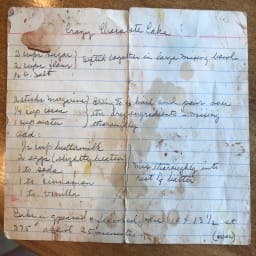 Crazy Chocolate Cake
2 cups sugar
2 cups flour } sifted together in large mixing bowl
½ t. salt
2 sticks margarine } bring to a boil and pour over
¼ cup cocoa } dry ingredients - mixing
1 cup water } thoroughly
add:
½ cup buttermilk
2 eggs (slightly beaten) mix thoroughly into
1 ts soda rest of batter
1 ts cinnamon
1 ts vanilla
Bake in greased & floured pan x 13½ at
375° 25 minutes
(over)